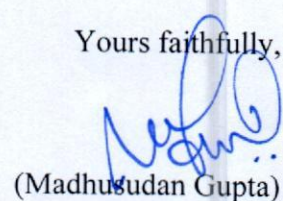 Yours faithfully,
(Madhusudan Gupta)